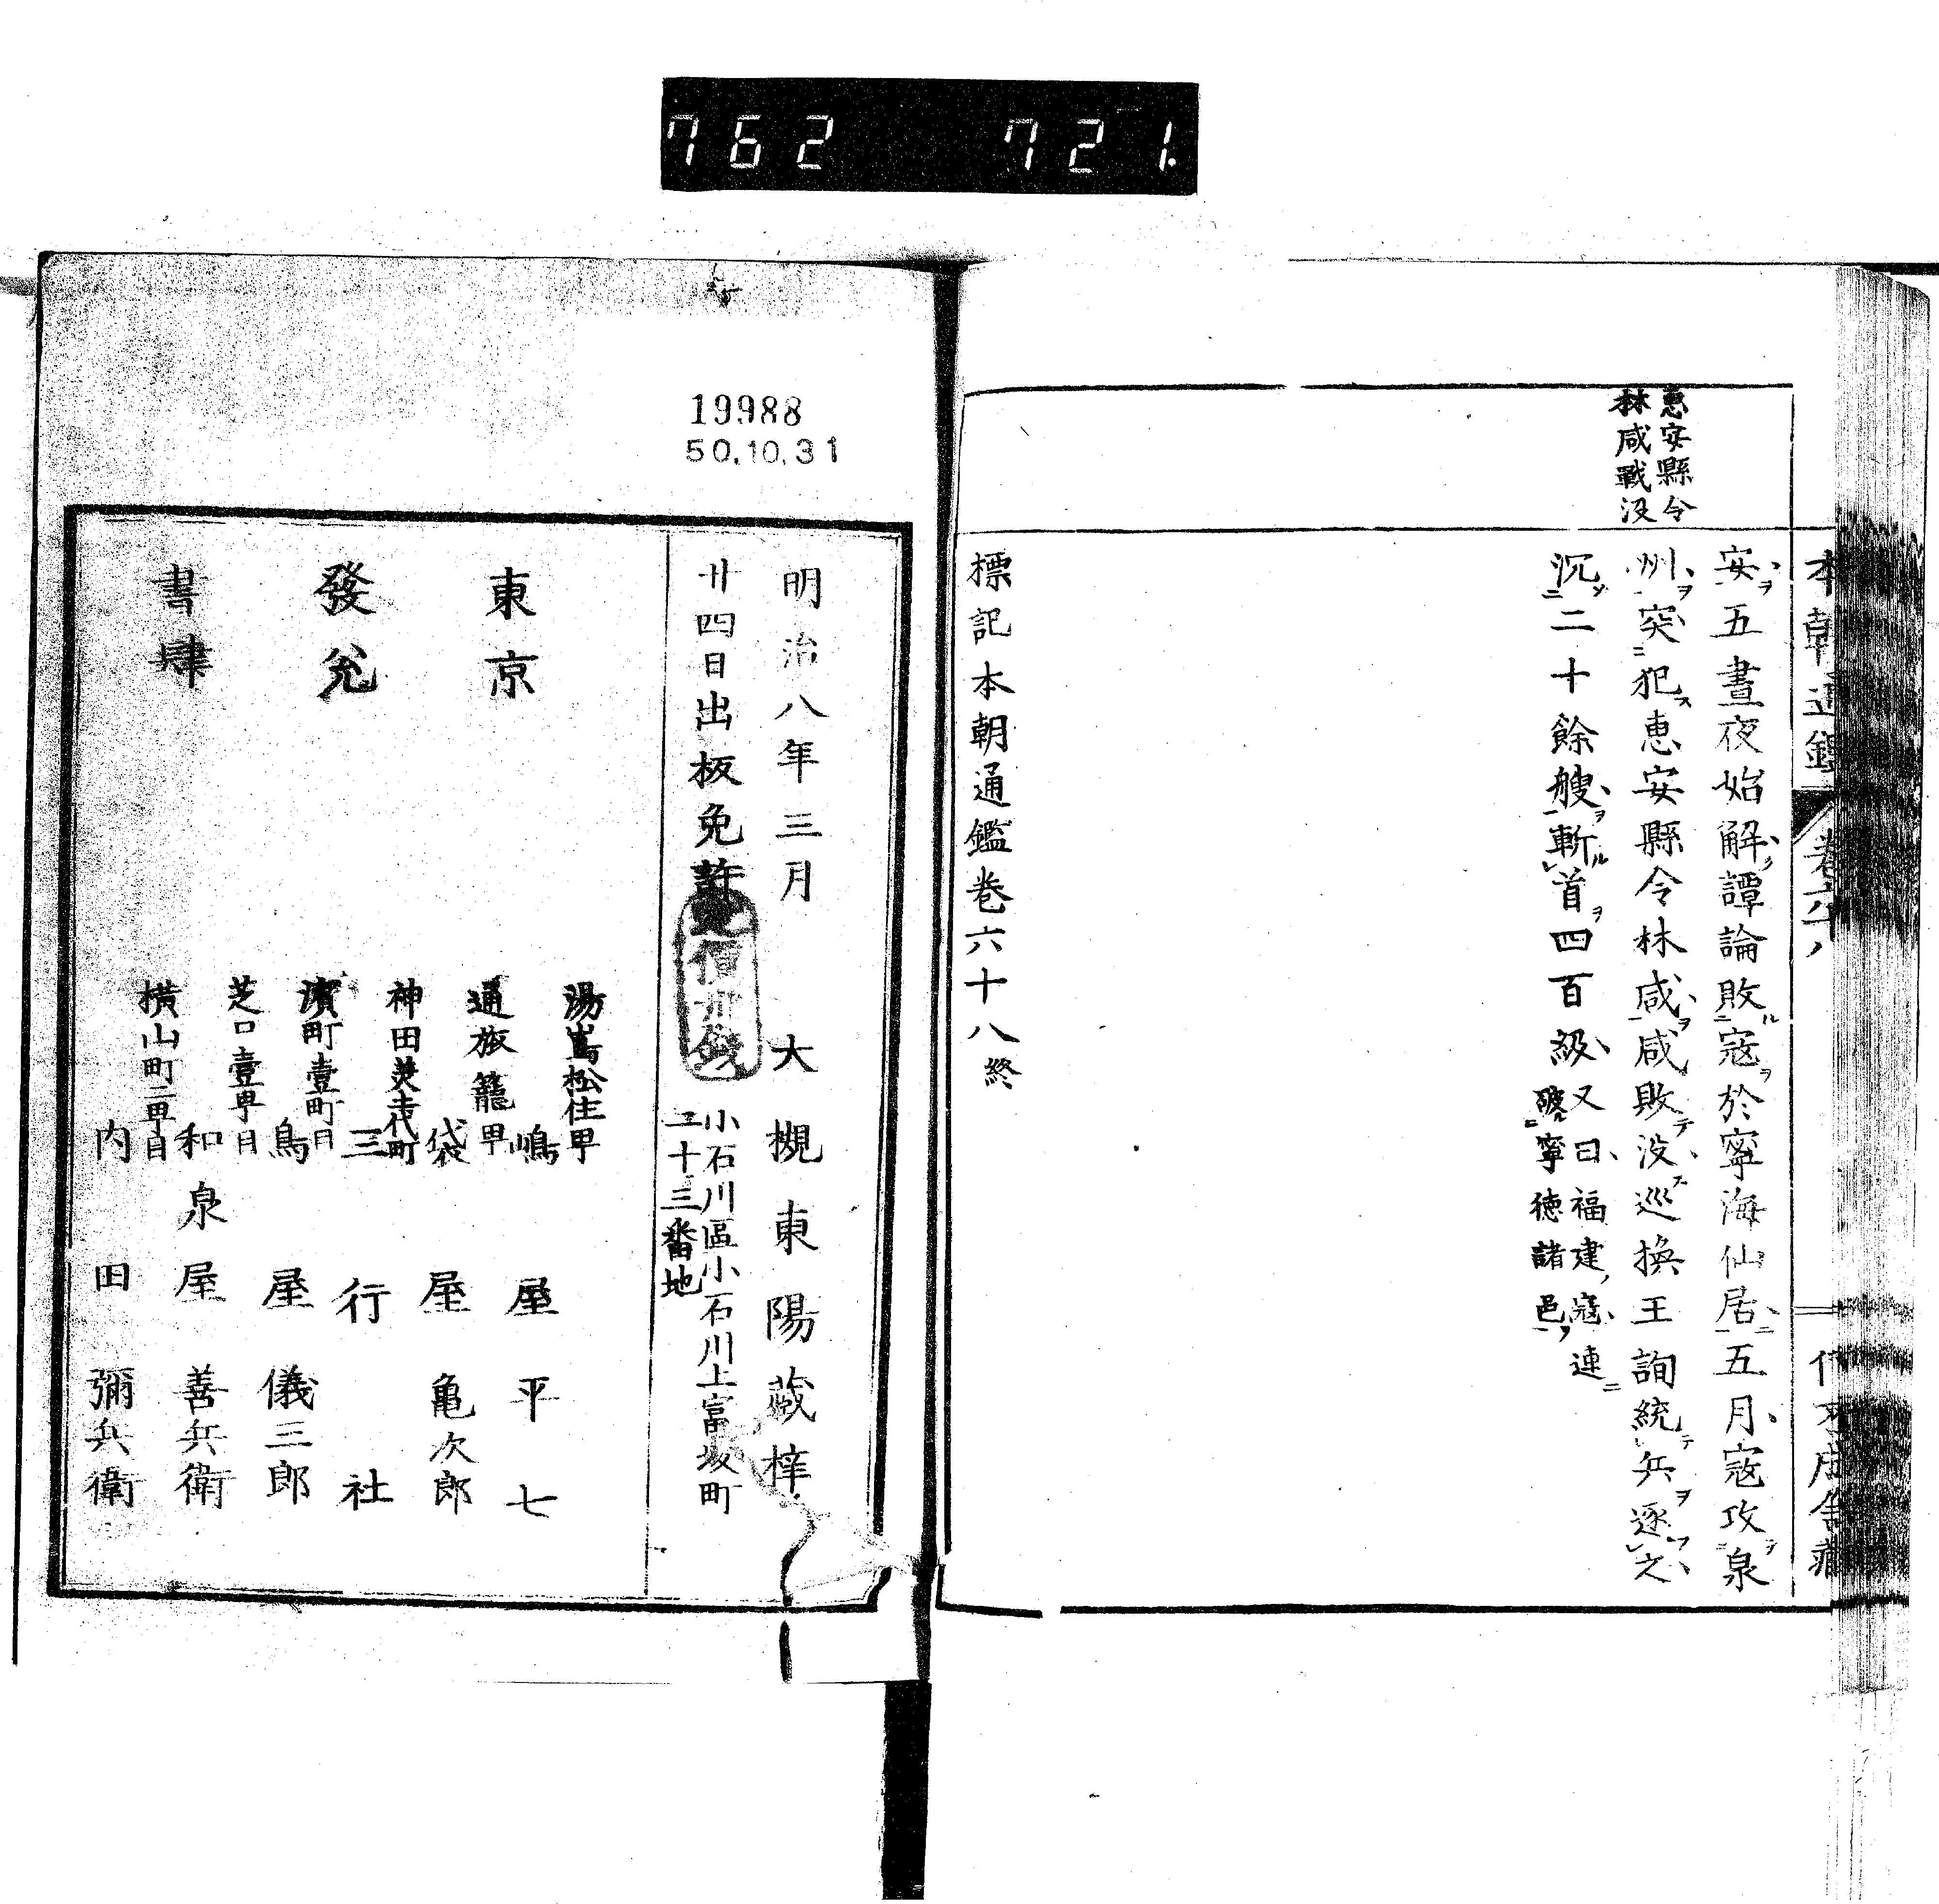 762 721.
惠安縣令
林咸戰沒
安五晝夜始解譚論敗寇於寧海仙居五月寇攻泉
州突犯惠安縣令林咸咸敗没巡撫王詢統兵逐之
沉二十餘艘斬首四百級
又曰福建寇連
寧德諸邑
標記本朝通鑑卷六十八終
19988
50.10.31
明治八年三月 大槻東陽藏梓
卄四日出板免許
小石川區小石川上富坂町
二十三番地
東京
發兌
書肆
湯嶌松住町 嶋屋平七
通旅籠町 袋屋亀次郎
神田美土代町 三行社
濱町壹町目 鳥屋儀三郎
芝口壹町目 和泉屋善兵衛
横山町三町目 内田彌兵衛